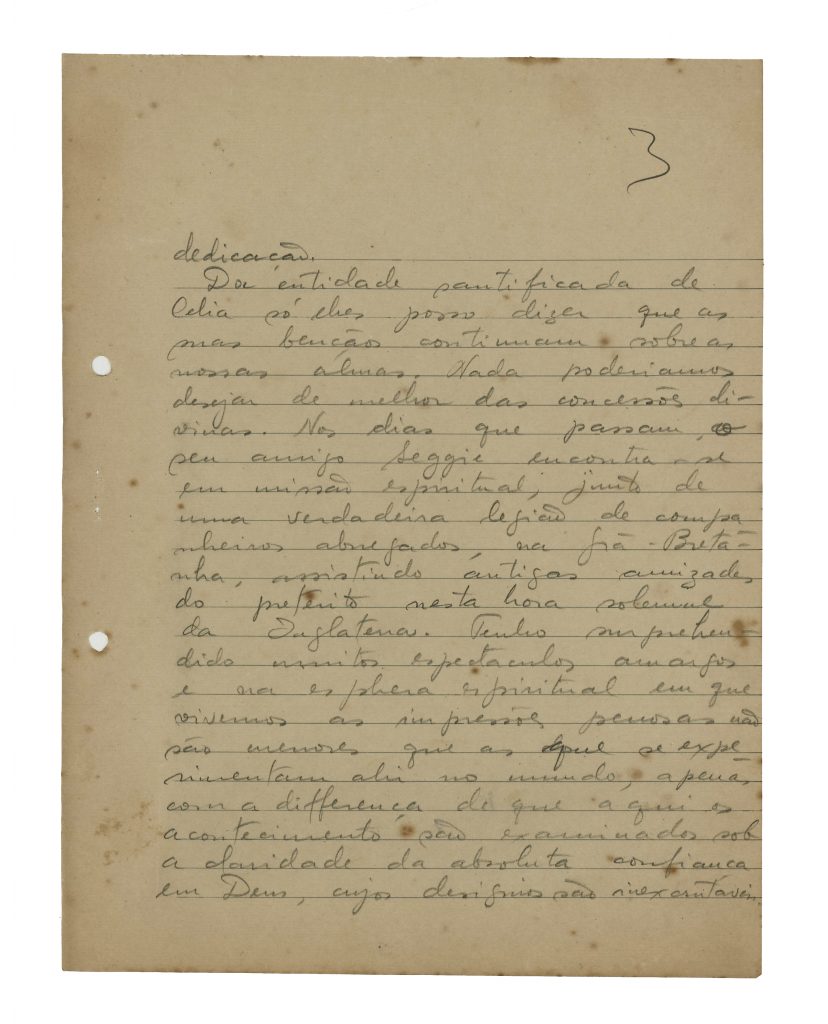 3
dedicação.
Da entidade santificada de
Celia só lhes posso dizer que as
suas bençãos continuam sobre as
nossas almas. Nada poderiamos
desejar de melhor das concessões di-
vinas. Nos dias que passam, o
seu amigo Seggie encontra-se
em missão espiritual, junto de
uma verdadeira legião de compa
nheiros abnegados, na Grã-Breta-
nha, assistindo antigas amizades
do preterito nesta hora solemne
da Inglaterra. Tenho surprehen-
dido muitos espectaculos amargos
e na esphera espiritual em que
vivemos as impressões penosas não
são menores que as que se expe
rimentam ahi no mundo, apenas
com a differença de que aqui os
acontecimento são examinados sob
a claridade da absoluta confiança
em Deus, cujos designios são inexcrutaveis